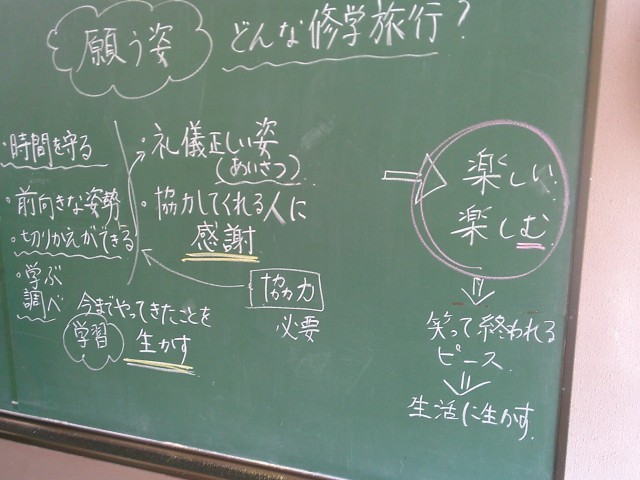 願う姿 どんな修学旅行?
・時間を守る
・前向きな姿勢
・切りかえができる
・学ぶ
調べ
・礼儀正しい姿
(あいさつ)
・協力してくれる人に
感謝
協力
必要
今までやってきたことを
学習 生かす
楽しい
楽しむ
笑って終われる
ピース
生活に生かす。